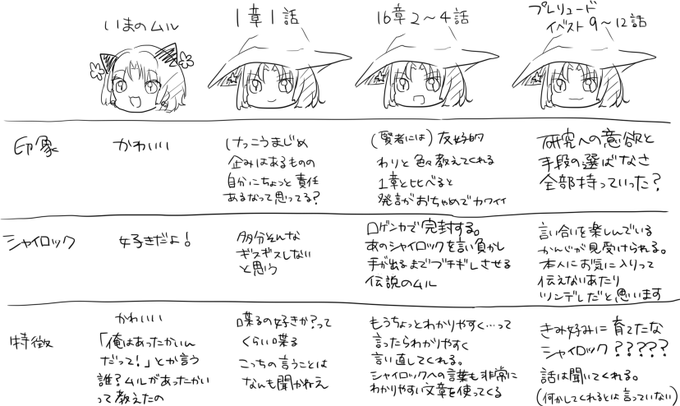 いまのムル
1章1話
16章2〜4話
プレリュード
イベスト9〜12話
印象
かわいい
けっこうまじめ
企みはあるものの
自分にちょっと責任
あるなって思ってる?
(賢者には)友好的
わりと色々教えてくれる
1章と比べると
発言がおちゃめでカワイイ
研究への意欲と
手段の選ばなさ
全部持っていった?
シャイロック
好きだよ!
多分そんな
ギスギスしない
と思う
口ゲンカで完封する。
あのシャイロックを言い負かし
手が出るまでブチギレさせる
伝説のムル
言い合いを楽しんでいる
かんじが見受けられる。
本人にお気に入りって
伝えないあたり
ツンデレだと思います
特徴
かわいい
「俺はあったかいん
だって!」とか言う
誰?ムルがあったかい
って教えたの
喋るの好きか?って
くらい喋る
こっちの言うことは
なんも聞かねえ
もうちょっとわかりやすく…って
言ったらわかりやすく
言い直してくれる。
シャイロックへの言葉も非常に
わかりやすい文章を使ってくる
きみ好みに育てたな
シャイロック?????
話は聞いてくれる。
(何かしてくれるとは言っていない)